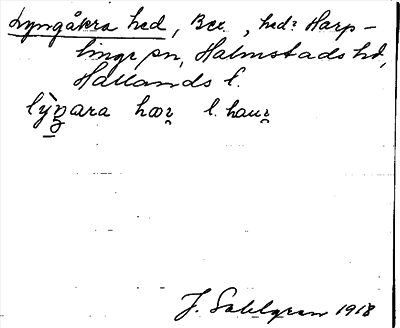 Lyngåkra hed, Bee., hed: Harp-
linge sn, Halmstads hd,
Hallands l.
lỳŋara hæꝛ l. hauꝛ
J. Sahlgren 1918